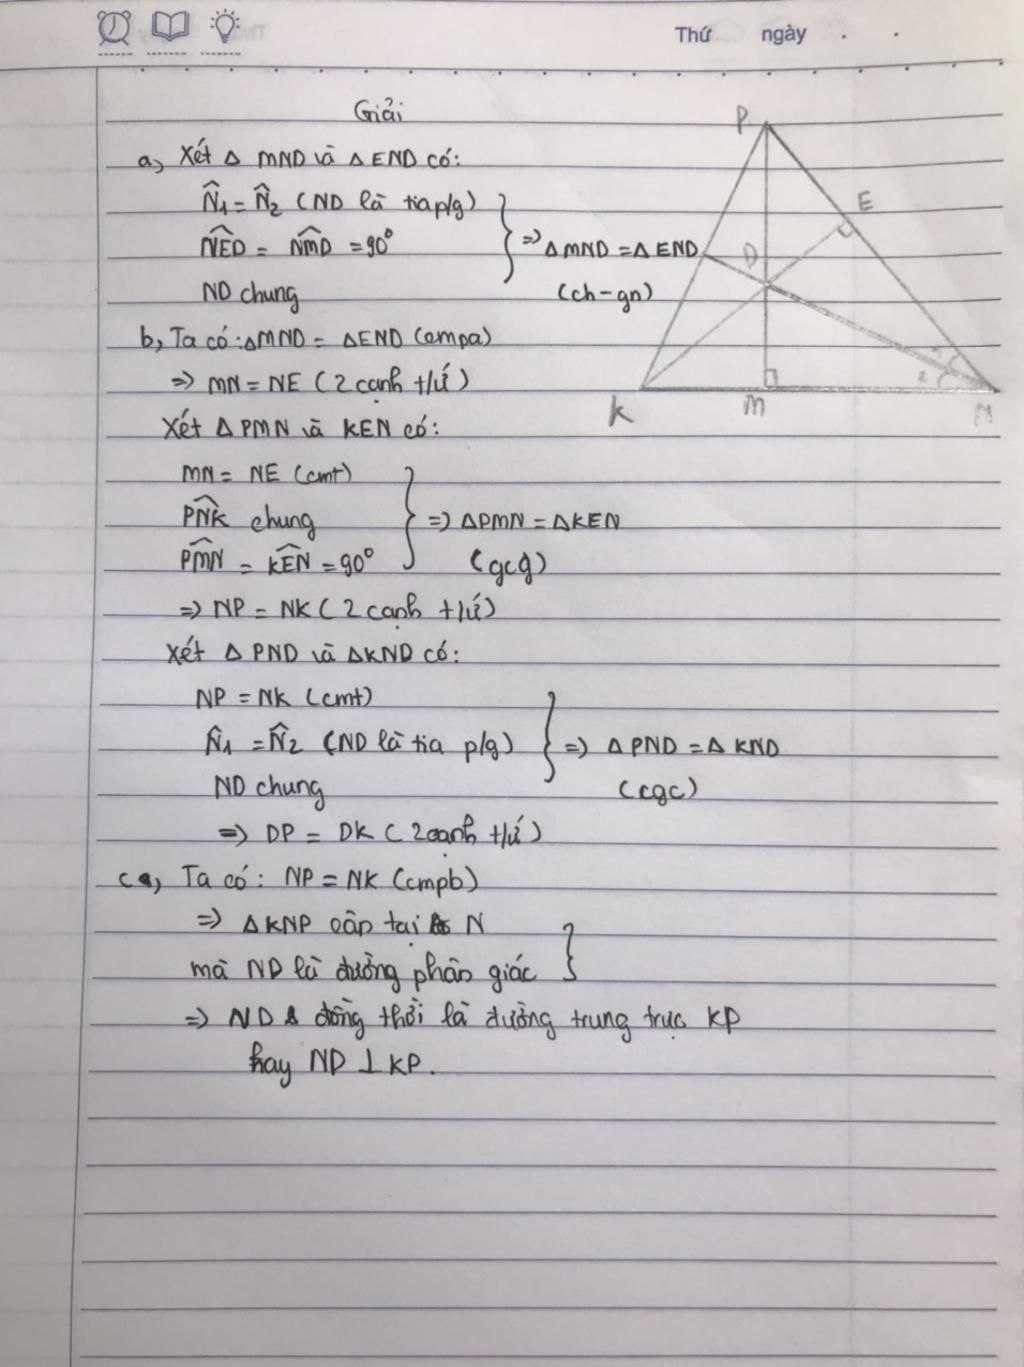 Thứ ngày . .
Giải
a, Xét Δ MND và Δ END có:
N̂1 = N̂2 (ND là tia p/g)
NED = NMD = 90°
ND chung
} => ΔMND = Δ END
(ch-gn)
b, Ta có: ΔMND = ΔEND (cmpa)
=> MN = NE (2 cạnh t/ứ)
Xét Δ PMN và KEN có:
MN = NE (cmt)
PNK chung
PMN = KEN = 90°
} => ΔPMN = ΔKEN
(gcg)
=> NP = NK (2 cạnh t/ứ)
Xét Δ PND và ΔKND có:
NP = NK (cmt)
N̂1 = N̂2 (ND là tia p/g)
ND chung
} => Δ PND = Δ KND
(cgc)
=> DP = DK (2 cạnh t/ứ)
c, Ta có: NP = NK (cmpb)
=> Δ KNP cân tại N
mà ND là đường phân giác }
=> ND đồng thời là đường trung trực KP
hay ND ⊥ KP.
P
E
D
1
2
K M N